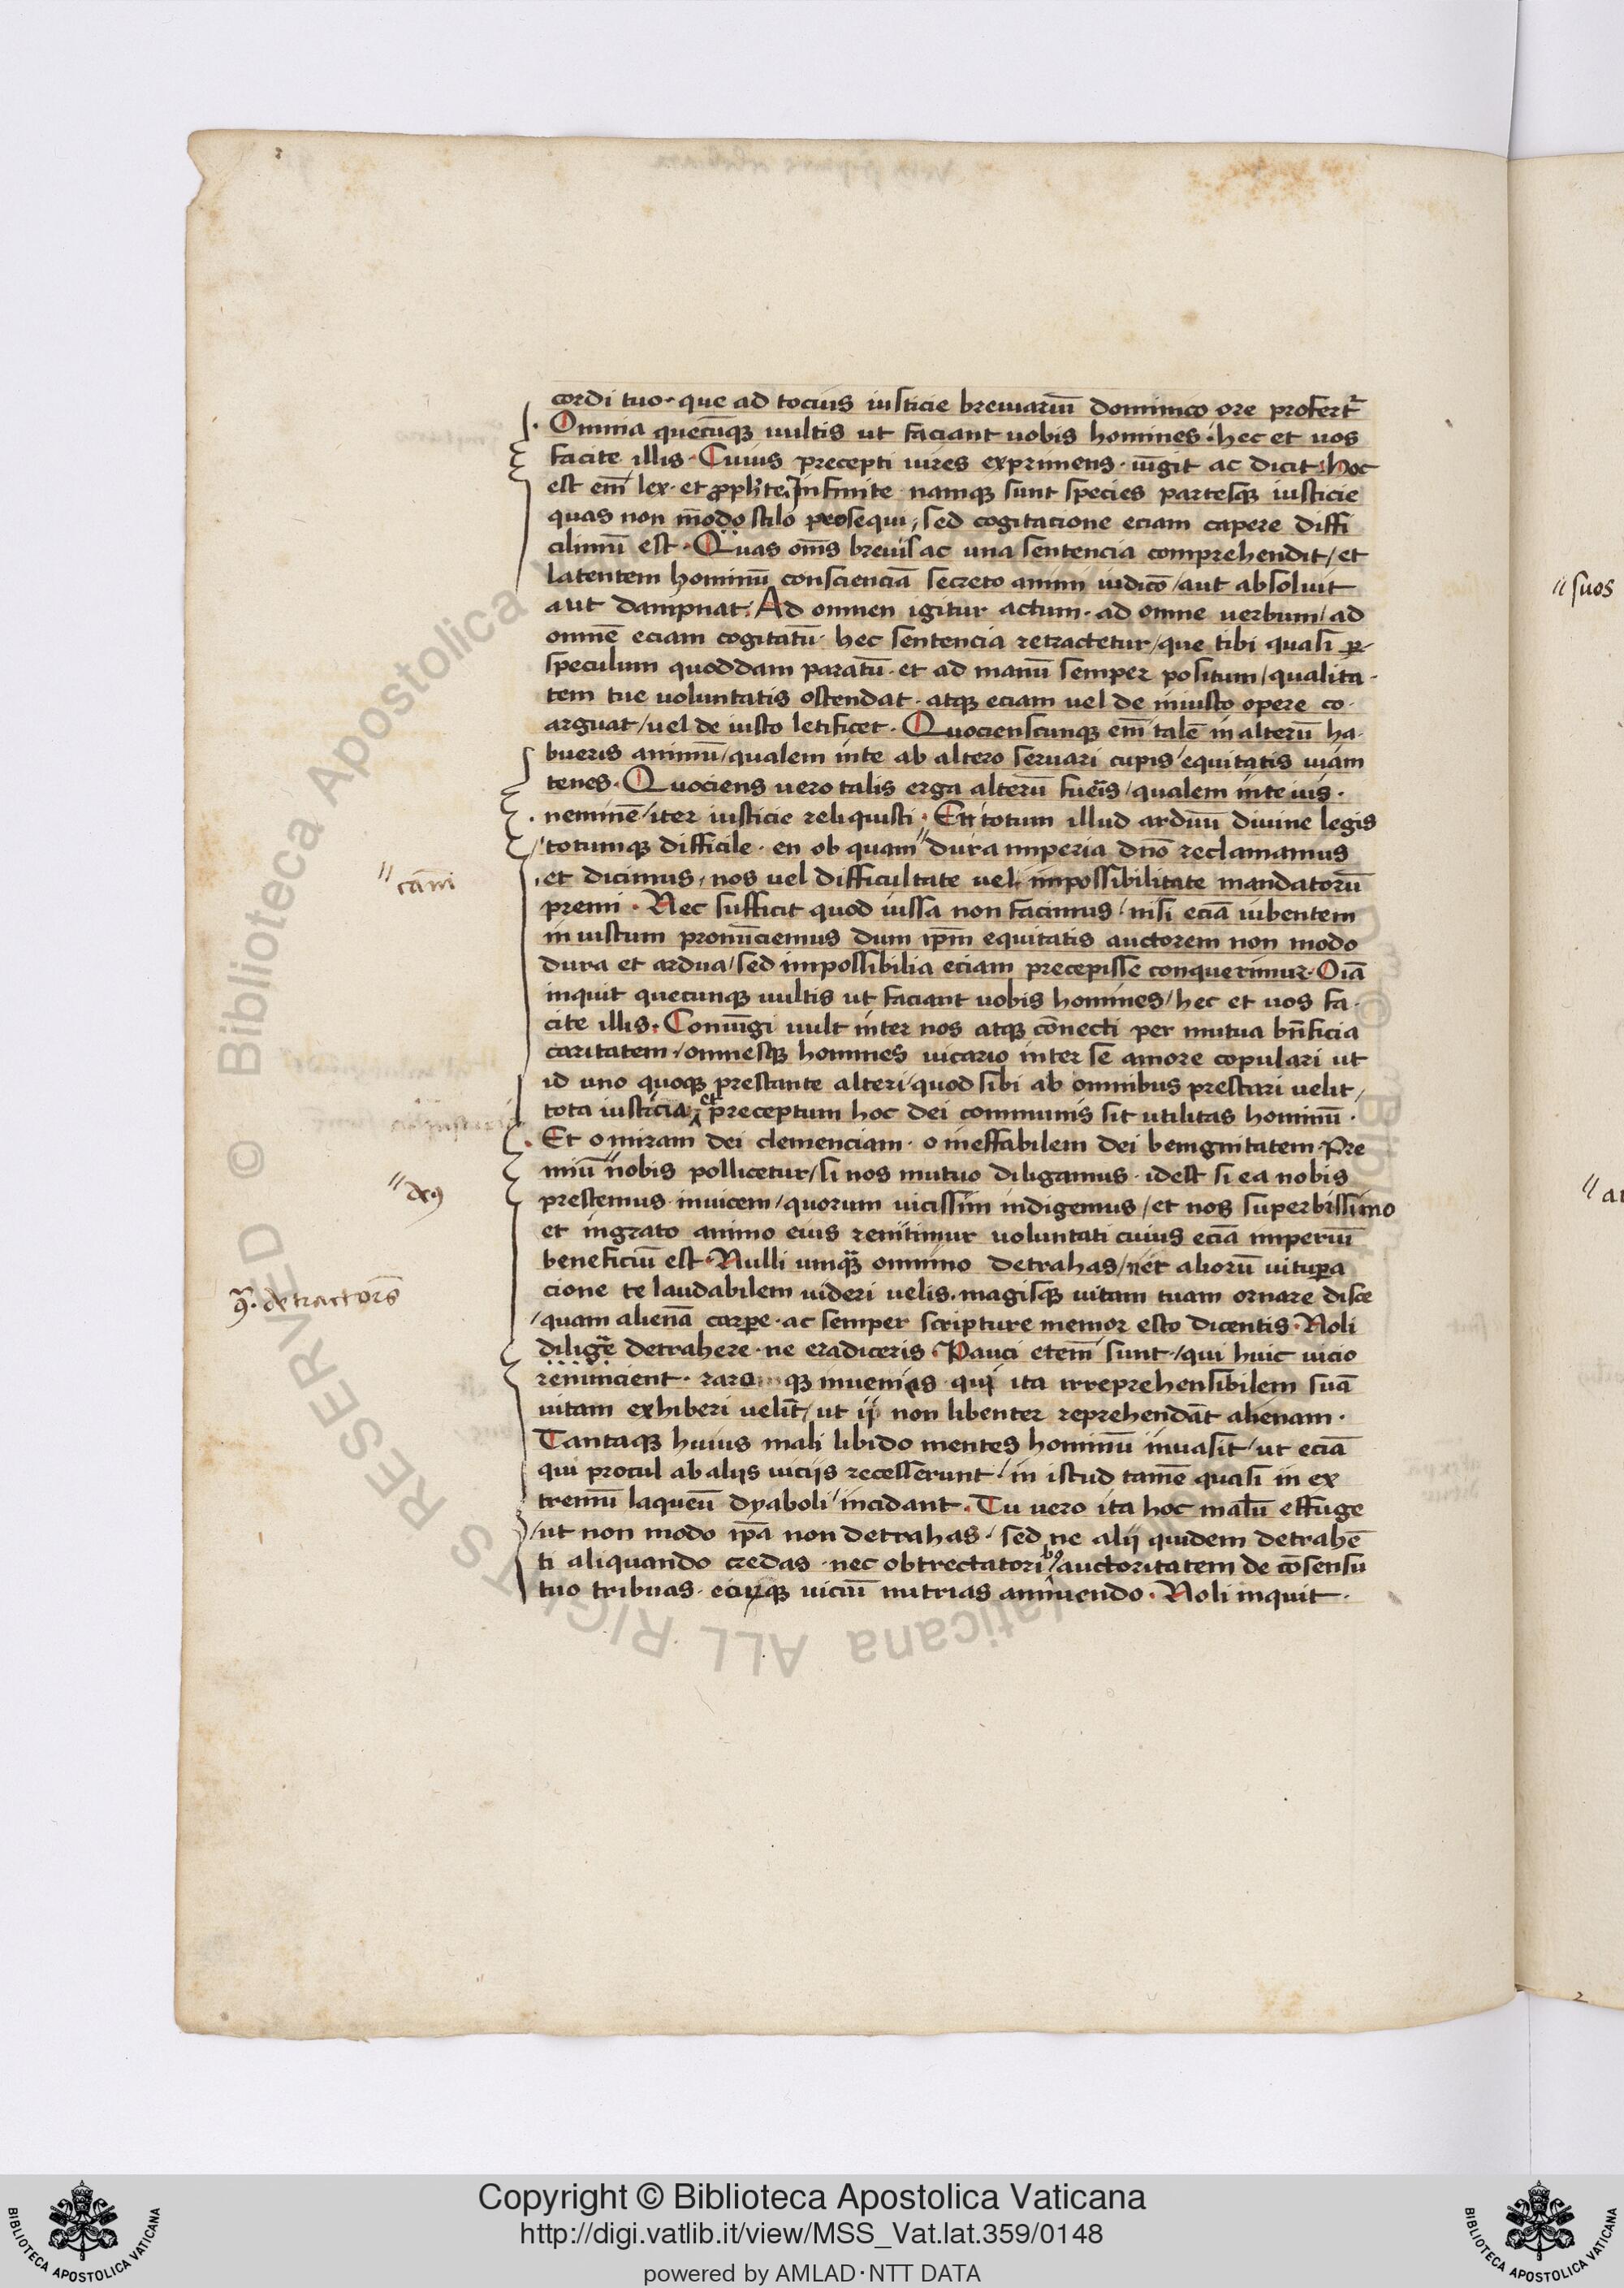 cordi tuo · que ad tocius iusticie breuiariū dominico ore profert᷑
Omnia quecūq; uultis ut faciant uobis homines · hec et uos
facite illis · Cuius precepti uires exprimens · iūgit ac dicit · hoc
est em̄ lex · et ꝓph̄te. Infinite namq; sunt species partesq; iusticie
quas non m̄odo stilo prosequi, sed cogitacione eciam capere diffi
cilimū est · Quas om̄s breuis ac una sentencia comprehendit / et
latentem hominū conscienciā secreto animi iudicō / aut absoluit
aut dampnat. Ad omnen igitur actum · ad omne uerbum / ad
omnē eciam cogitatū · hec sentencia retractetur / que tibi quasi ꝑ-
speculum quoddam paratū · et ad manū semper positum / qualita-
tem tue uoluntatis ostendat · atq; eciam uel de iniusto opere co-
arguat / uel de iusto letificet · Quociensctunq; em̄ talē in alterū ha-
bueris animū / qualem inte ab altero seruari cupis / equitatis uiam
tenes · Quociens uero talis erga alterū fu̅eis / qualem inte uis ·
neminē / iter iusticie reliquisti · En totum illud arduū diuine legis
totumq; difficile · en ob quam " dura imperia dn̄o reclamamus
et dicimus, nos uel difficultate uel impossibilitate mandatorū
premi · Nec sufficit quod iussa non facimus / nisi eciā iubentem
iniustum pronūciemus dum ip̄m equitatis auctorem non modo
dura et ardua / sed impossibilia eciam precepisse conquerimur · Oīa
inquit quecunq; uultis ut faciant uobis homines / hec et uos fa-
cite illis · Coniūgi uult inter nos atq; cōnecti per mutua bn̄ficia
caritatem / omnesq; homines uicario inter se amore copulari ut
id uno quoq; prestante alteri / quod sibi ab omnibus prestari uelit /
tota iusticia et preceptum hoc dei communis sit utilitas hominū ·
Et o miram dei clemenciam · o ineffabilem dei benignitatem · Pre
miū " nobis pollicetur / si nos mutuo diligamus · idest si ea nobis
prestemus inuicem / quorum uicissim indigemus / et nos superbissimo
et ingrato animo eius renitimur uoluntati cuius eciā imperiū
beneficiū est · Nulli umq̄ omnino detrahas / nec aliorū uituꝑa
cione te laudabilem uideri uelis · magisq; uitam tuam ornare disce
/ quam alienā carpe · ac semper scripture memor esto dicentis · Noli
diligē detrahere · ne eradiceris · Pauci etem̄ sunt / qui huic uicio
renuncient · raroq; inuenies qui ita irreprehensibilem suā
uitam exhiberi uelīt / ut ij non libenter reprehendāt alienam ·
Tantaq; huius mali libido mentes hominū inuasit / ut eciā
qui procul ab alijs uicijs recesserunt / in istud tamē quasi in ex
tremū laqueū dyaboli / incidant · Tu uero ita hoc malū effuge
/ ut non modo ip̄a non detrahas · sed ne alij quidem detrahē
ti aliquando credas · nec obtrectatoribꝰ / auctoritatem de cōsensu
tuo tribuas · eiusq; uiciū nutrias annuendo · Noli inquit ·
" tām
" deꝰ
detractorēs
" suos
Copyright © Biblioteca Apostolica Vaticana
http://digi.vatlib.it/view/MSS_Vat.lat.359/0148
powered by AMLAD·NTT DATA
BIBLIOTECA APOSTOLICA VATICANA
BIBLIOTECA APOSTOLICA VATICANA
© Biblioteca Apostolica Vaticana ALL RIGHTS RESERVED